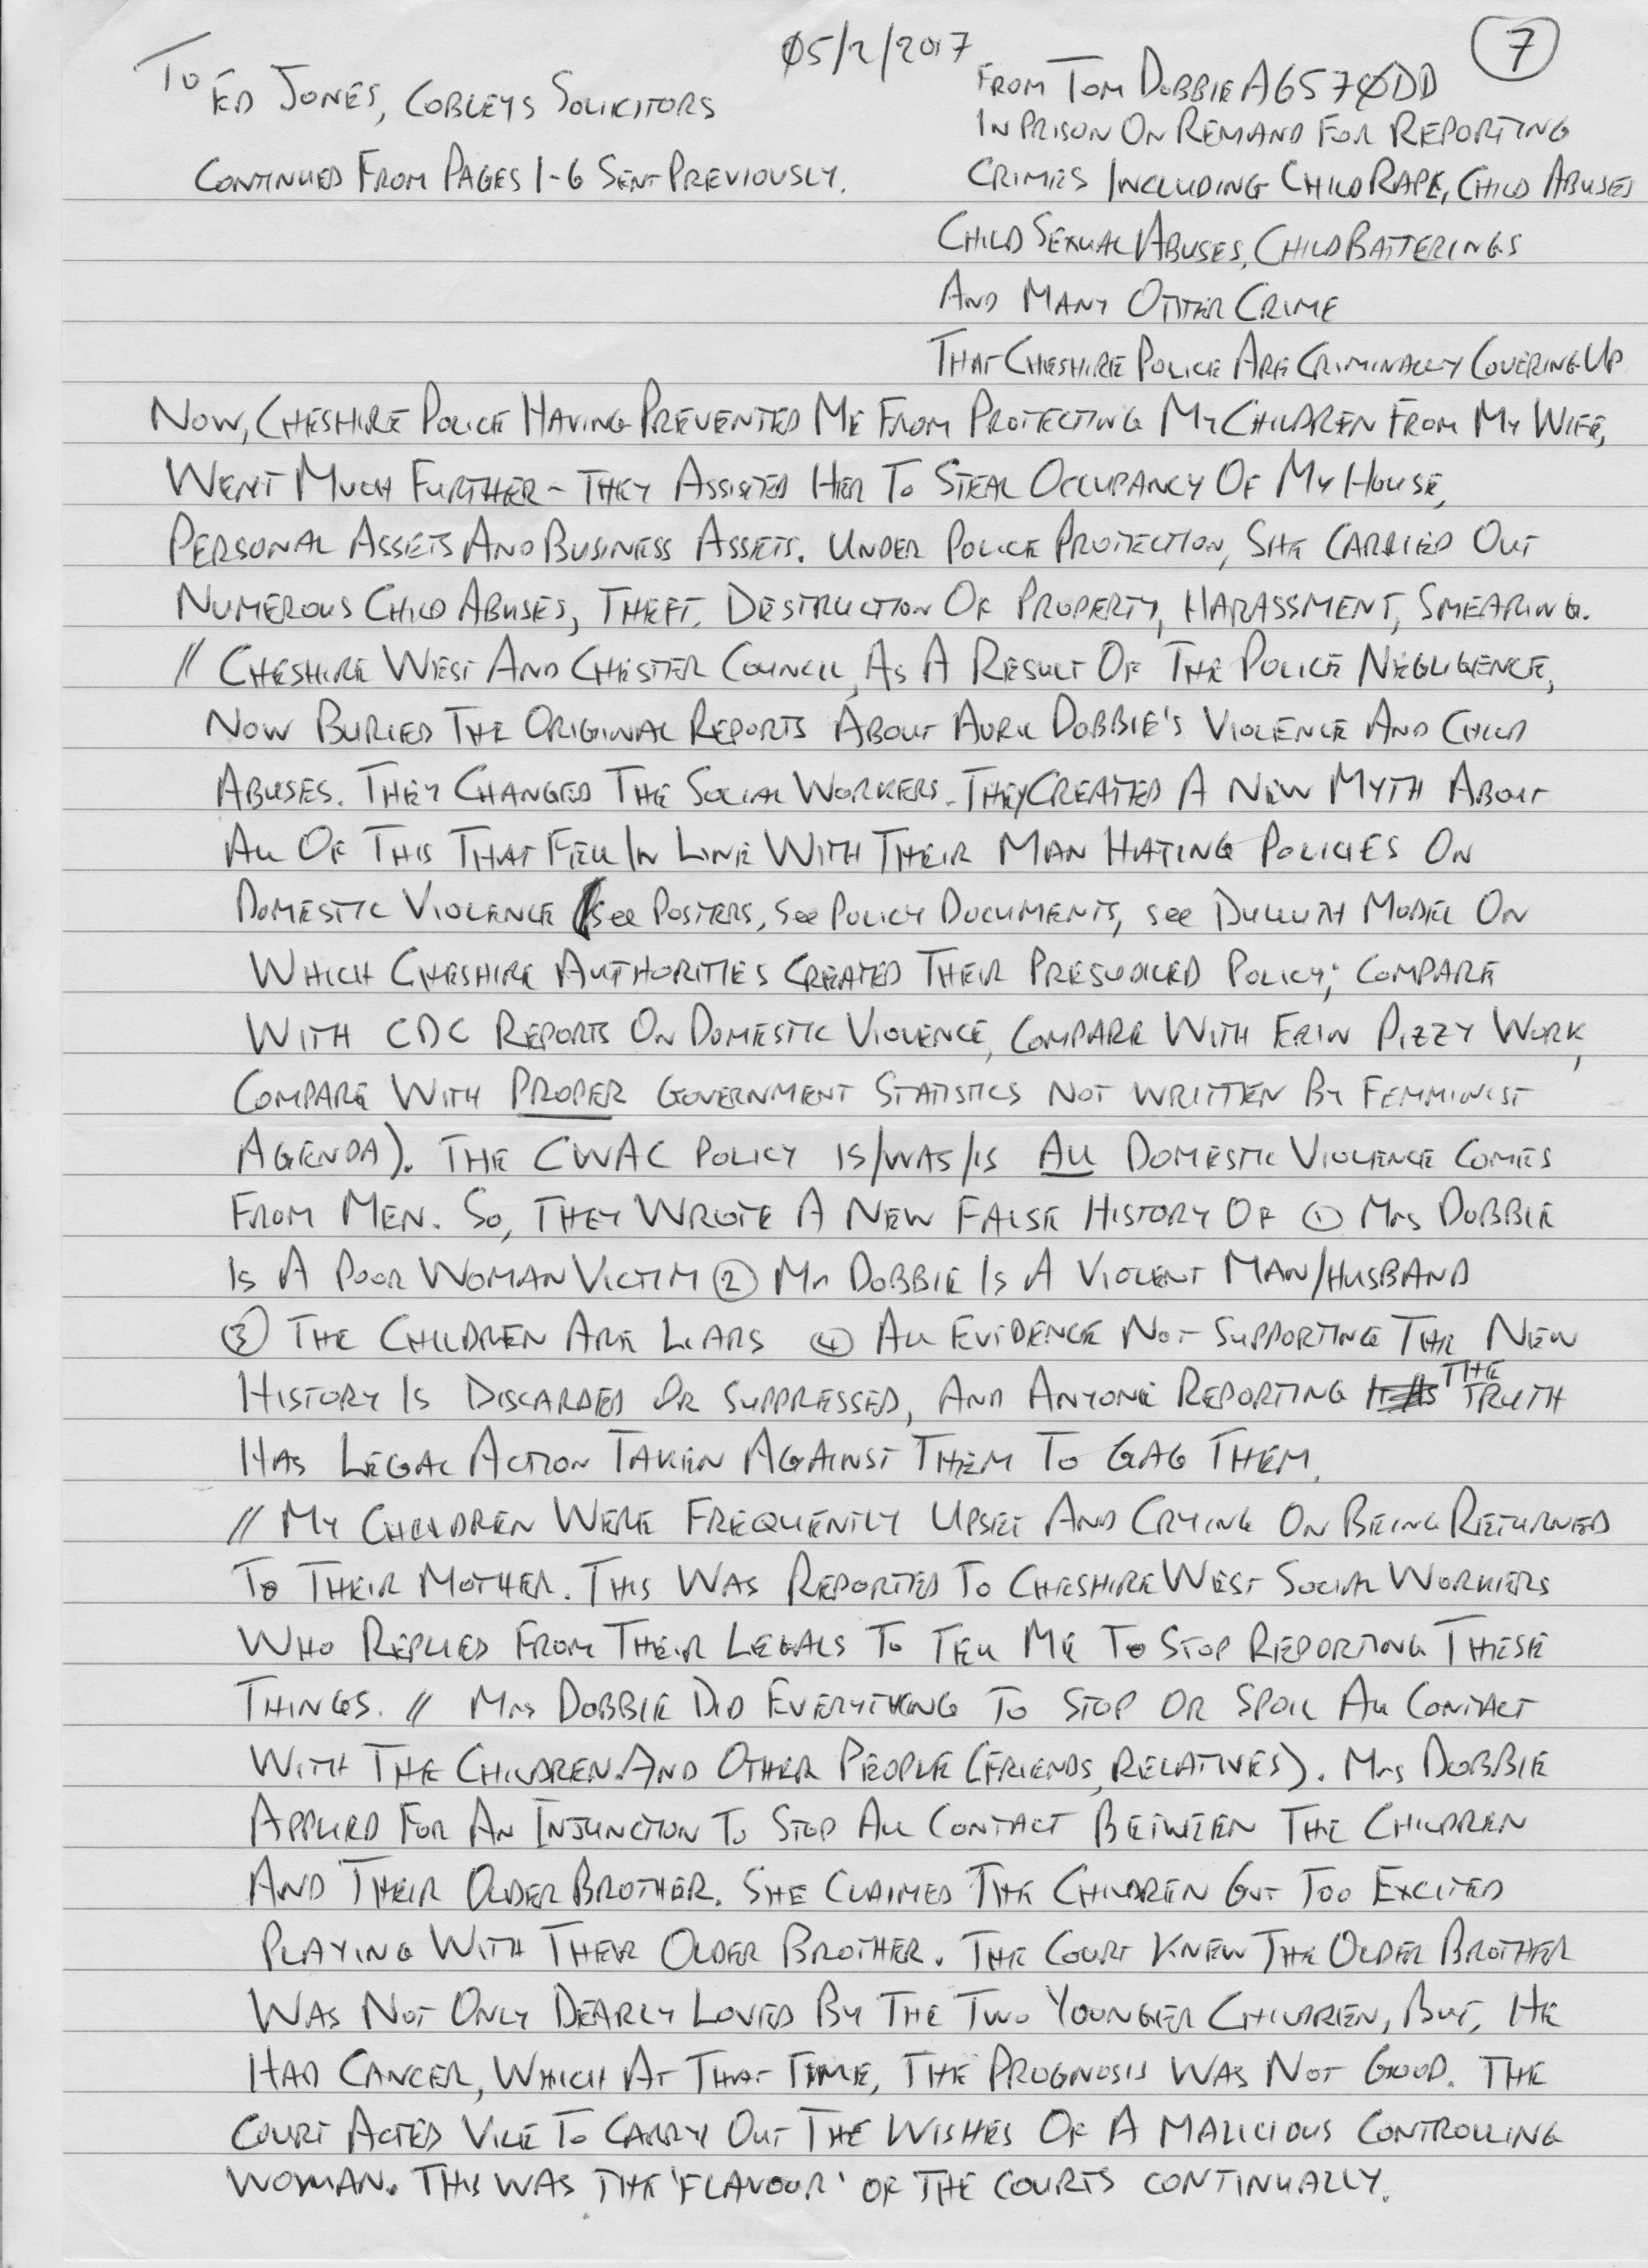 05/2/2017
7
To Ed Jones, Cobleys Solicitors
Continued From Pages 1-6 Sent Previously.
From Tom Dobbie A6570DD
In Prison On Remand For Reporting
Crimes Including Child Rape, Child Abuses
Child Sexual Abuses, Child Batterings
And Many Other Crime
That Cheshire Police Are Criminally Covering Up
Now, Cheshire Police Having Prevented Me From Protecting My Children From My Wife,
Went Much Further - They Assisted Her To Steal Occupancy Of My House,
Personal Assets And Business Assets. Under Police Protection, She Carried Out
Numerous Child Abuses, Theft, Destruction Of Property, Harassment, Smearing.
// Cheshire West And Chester Council, As A Result Of The Police Negligence,
Now Buried The Original Reports About Avril Dobbie's Violence And Child
Abuses. They Changed The Social Workers. They Created A New Myth About
All Of This That Fell In Line With Their Man Hating Policies On
Domestic Violence (see Posters, see Policy Documents, see Duluth Model On
Which Cheshire Authorities Created Their Prejudiced Policy; Compare
With CDC Reports On Domestic Violence, Compare With Erin Pizzy Work,
Compare With Proper Government Statistics Not Written By Femminist
Agenda). The CWAC Policy Is/Was/Is All Domestic Violence Comes
From Men. So, They Wrote A New False History Of ① Mrs Dobbie
Is A Poor Woman Victim ② Mr Dobbie Is A Violent Man/Husband
③ The Children Are Liars ④ All Evidence Not Supporting The New
History Is Discarded Or Suppressed, And Anyone Reporting The Truth
Has Legal Action Taken Against Them To Gag Them.
// My Children Were Frequently Upset And Crying On Being Returned
To Their Mother. This Was Reported To Cheshire West Social Workers
Who Replied From Their Legals To Tell Me To Stop Reporting These
Things. // Mrs Dobbie Did Everything To Stop Or Spoil All Contact
With The Children And Other People (Friends, Relatives). Mrs Dobbie
Applied For An Injunction To Stop All Contact Between The Children
And Their Older Brother. She Claimed The Children Got Too Excited
Playing With Their Older Brother. The Court Knew The Older Brother
Was Not Only Dearly Loved By The Two Younger Children, But, He
Had Cancer, Which At That Time, The Prognosis Was Not Good. The
Court Acted Vile To Carry Out The Wishes Of A Malicious Controlling
Woman. This Was The 'Flavour' Of The Courts Continually.